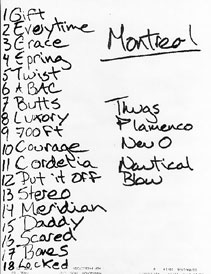 1 Gift
2 Everytime
3 Grace
4 Epring
5 Twist
6 ABAC
7 Butts
8 Luxury
9 700 Ft
10 Courage
11 Cordelia
12 Put it off
13 Stereo
14 Meridian
15 Daddy
16 Scared
17 Bones
18 Locked
Montreal
Thugs
Flamenco
New O
Nautical
Blow